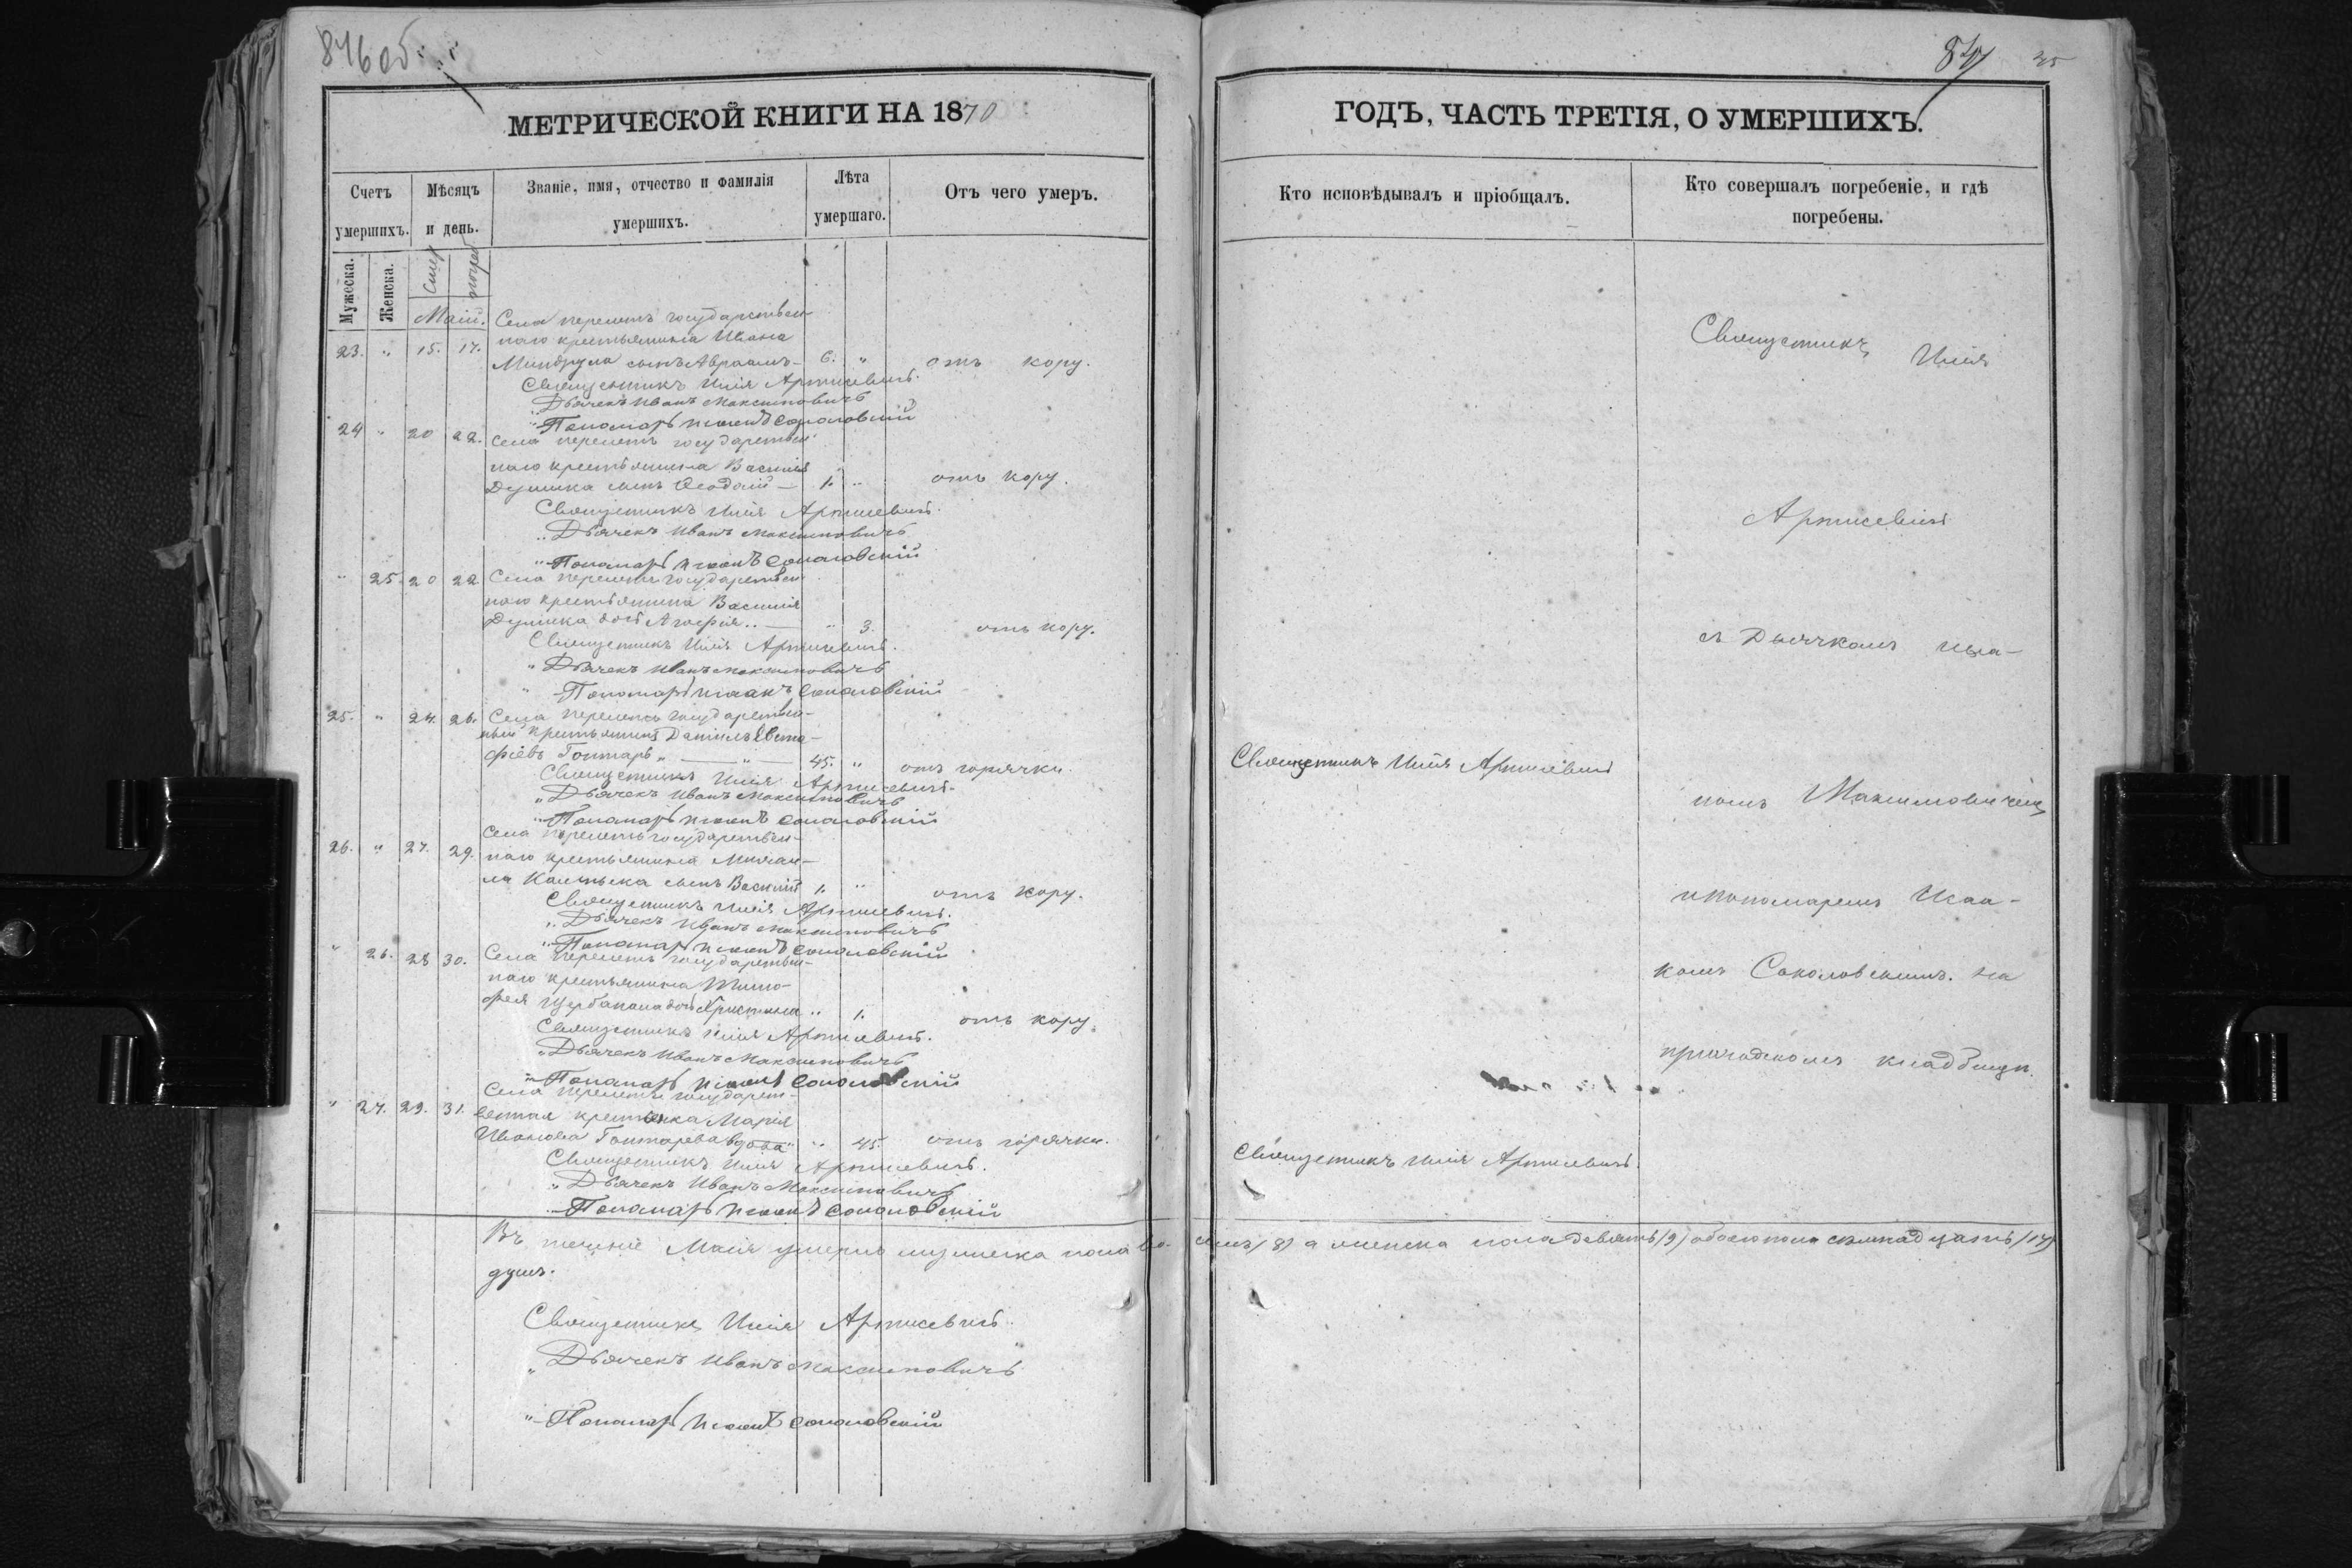 846 об.
847 35
МЕТРИЧЕСКОЙ КНИГИ НА 1870
Счетъ умершихъ.
Мѣсяцъ и день.
Званіе, имя, отчество и фамилія умершихъ.
Лѣта умершаго.
Отъ чего умеръ.
Мужеска.
Женска.
смер
погреб
Маій.
Села Перелетъ государствен-
23. " 15. 17. наго крестьянина Ивана
сынъ Авраамъ 6. " отъ кору.
Священникъ Илія Артисевичъ.
"Дьячекъ Иванъ Максимовичъ
"Пономарь Исаакъ Соколовскій
24 " 20 22. Села Перелетъ государствен-
наго крестьянина Василія
Душика сынъ Ѳеодосій — 1. " отъ кору.
Священникъ Илія Артисевичъ.
"Дьячекъ Иванъ Максимовичъ
"Пономарь Исаакъ Соколовскій
" 25. 20 22. Села Перелетъ государствен-
наго крестьянина Василія
Душика дочь Агафія " — " 3. отъ кору.
Священникъ Илія Артисевичъ.
"Дьячекъ Иванъ Максимовичъ
"Пономарь Исаакъ Соколовскій
25. " 24. 26. Села Перелетъ государстве-
ный крестьянинъ Даніилъ Евста-
фіевъ Гонтарь " — " — 45. " отъ горячки.
Священникъ Илія Артисевичъ.
"Дьячекъ Иванъ Максимовичъ
"Пономарь Исаакъ Соколовскій
26. " 27. 29. Села Перелетъ государствен-
наго крестьянина Михаи-
ла сынъ Василій 1. " отъ кору.
Священникъ Илія Артисевичъ.
"Дьячекъ Иванъ Максимовичъ
"Пономарь Исаакъ Соколовскій
" 26. 28 30. Села Перелетъ государствен-
наго крестьянина Тимо-
фея дочь Христина " 1. отъ кору.
Священникъ Илія Артисевичъ.
"Дьячекъ Иванъ Максимовичъ
"Пономарь Исаакъ Соколовскій
Села Перелетъ государст-
" 27. 29. 31. венная крестьянка Марія
Иванова Гонтарева вдова " " 45. отъ горячки.
Священникъ Илія Артисевичъ.
"Дьячекъ Иванъ Максимовичъ
"Пономарь Исаакъ Соколовскій
Въ теченіе Маія умерло мужеска пола во-
душъ.
Священникъ Илія Артисевичъ.
"Дьячекъ Иванъ Максимовичъ
"Пономарь Исаакъ Соколовскій
ГОДЪ, ЧАСТЬ ТРЕТІЯ, О УМЕРШИХЪ.
Кто исповѣдывалъ и пріобщалъ.
Кто совершалъ погребеніе, и гдѣ погребены.
Священникъ Илія
Артисевичъ
съ Дьячкомъ Ива-
Священникъ Илія Артисевичъ
номъ Максимовичемъ
и пономаремъ Исаа-
комъ Соколовскимъ. На
приходскомъ кладбищи.
Священникъ Илія Артисевичъ.
семъ /8/ а женска пола девять /9/ обоего пола семнадцать /17/